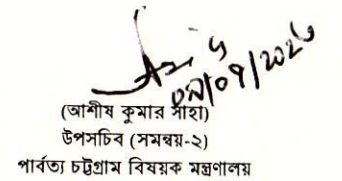 (আশীষ কুমার সাহা)
উপসচিব (সমন্বয়-২)
পার্বত্য চট্টগ্রাম বিষয়ক মন্ত্রণালয়